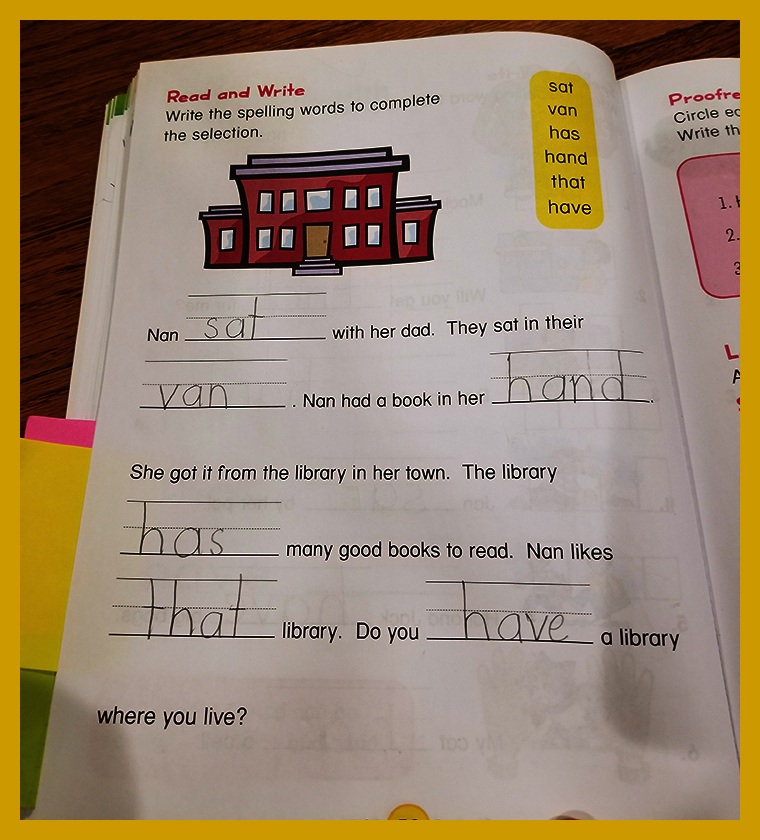 Read and Write
Write the spelling words to complete
the selection.
sat
van
has
hand
that
have
Nan sat with her dad. They sat in their
van . Nan had a book in her hand.
She got it from the library in her town. The library
has many good books to read. Nan likes
that library. Do you have a library
where you live?
Proofre
Circle
Write th
1.
2.
3